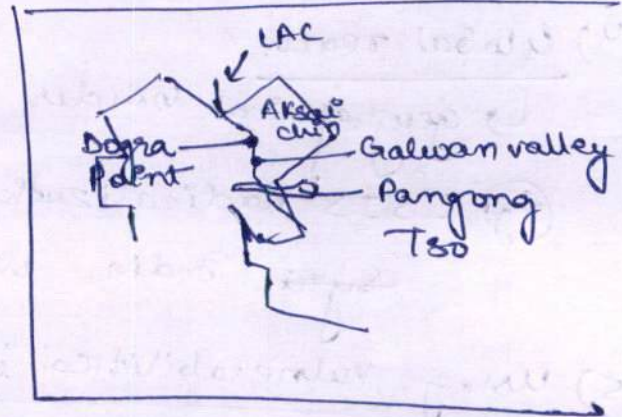 LAC
Aksai
chin
Dogra
Point
Galwan valley
Pangong
Tso